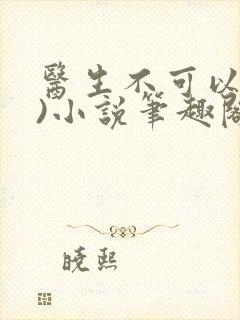 醫生不可以
)小說筆趣閣
曉熙